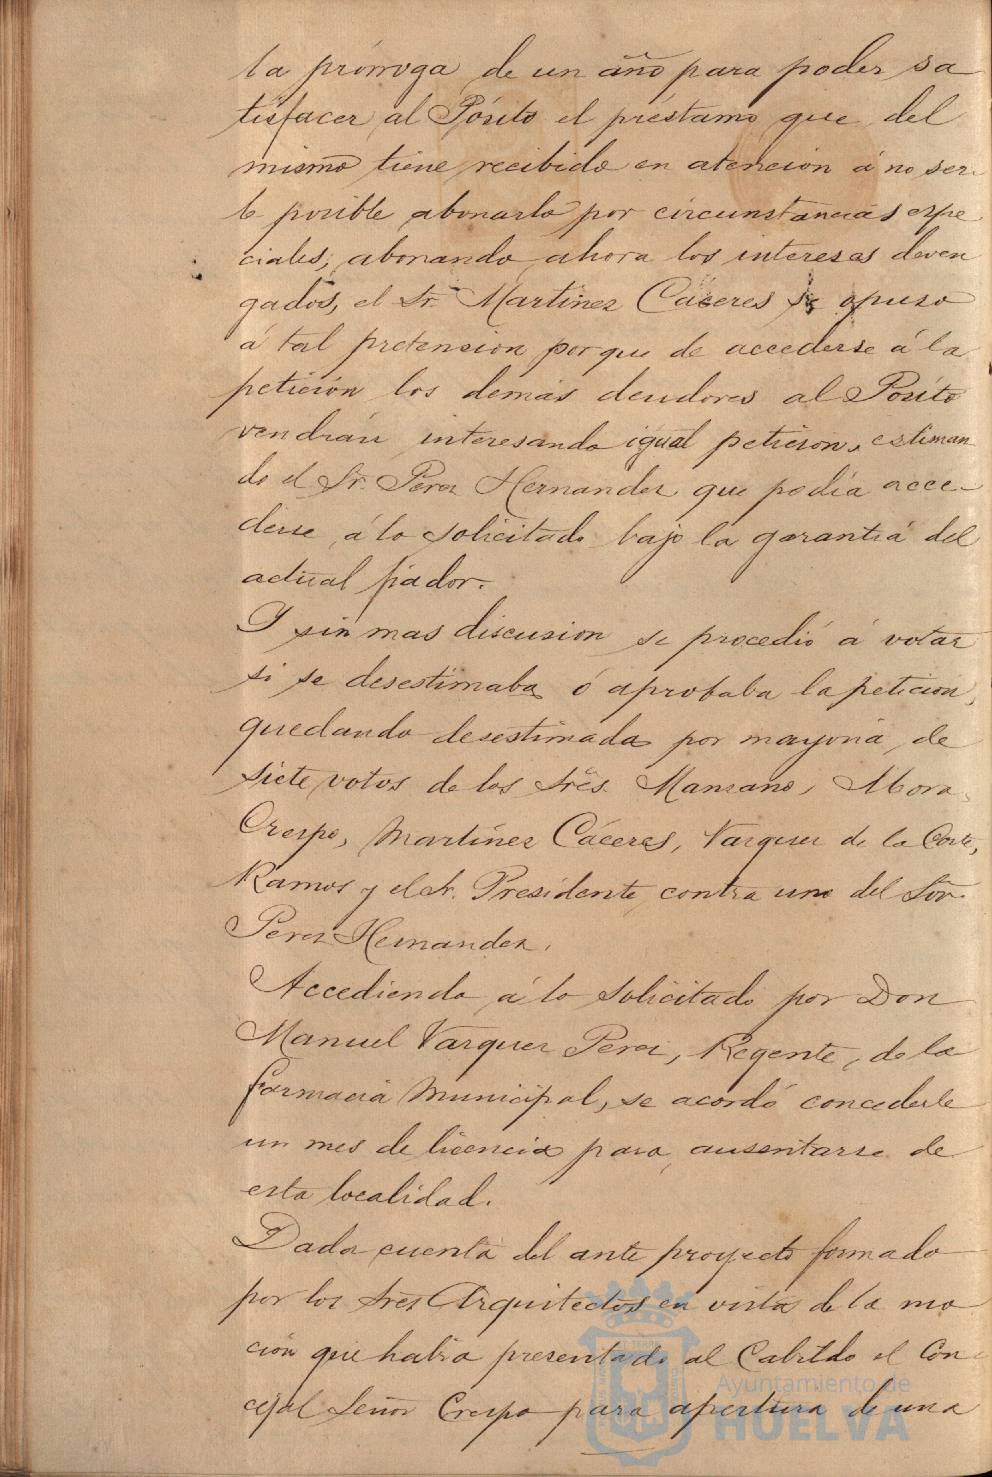 la prórroga de un año para poder sa
tisfacer al Pósito el préstamo que del
mismo tiene recibido en atención á no ser
le posible abonarlo por circunstancias espe
ciales, abonando ahora los intereses deven
gados, el Sr. Martinez Cáceres se opuso
á tal pretension porque de accederse á la
petición los demás deudores al Pósito
vendrán interesando igual peticion, estiman
do el Sr. Perez Hernandez que podía acce-
derse á lo solicitado bajo la garantía del
actual fiador.
Y sin mas discusion se procedió á votar
si se desestimaba ó aprobaba la peticion,
quedando desestimada por mayoria de
siete votos de los Sres. Manzano, Mora,
Crespo, Martinez Cáceres, Vazquez de la Corte,
Ramos y el Sr. Presidente contra uno del Sor.
Perez Hernandez.
Accediendo á lo solicitado por Don
Manuel Vazquez Perez, Regente de la
farmacia Municipal, se acordó concederle
un mes de licencia para ausentarse de
esta localidad.
Dada cuenta del ante proyecto formado
por los Sres Arquitectos en vista de la mo
ción que habia presentado al Cabildo el Con
cejal Señor Crespo para apertura de una
Ayuntamiento de
HUELVA